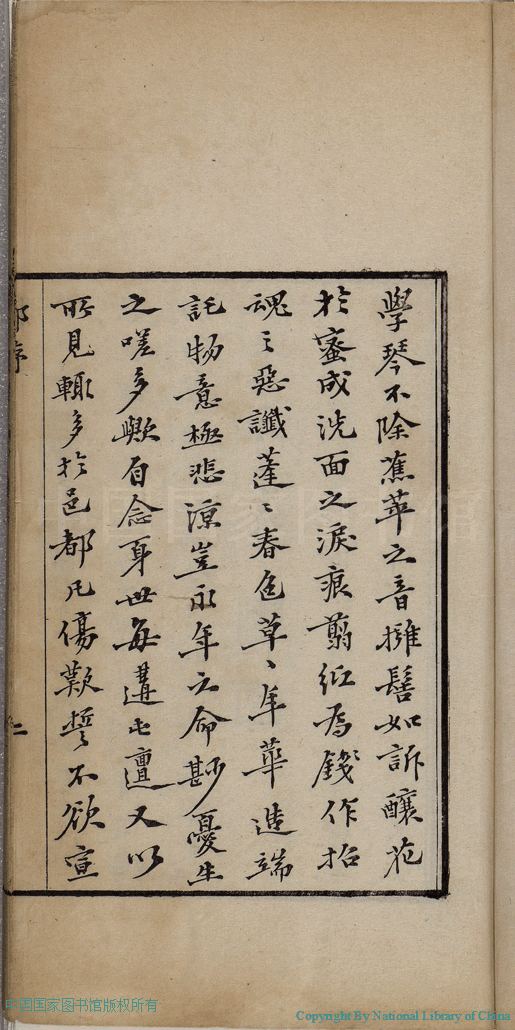 學琴不除蕉萃之音擁髻如訴釀花
於蜜成洗面之淚痕剪紙為錢作招
魂之惡讖蓬〻春色草〻年華造端
託物意極悲涼豈永年之命尠憂生
之嗟多歟自念身世每遘屯邅又以
所見輒多於邑都凡傷歎誓不欲宣
序
二
中国国家图书馆版权所有
Copyright By National Library of China